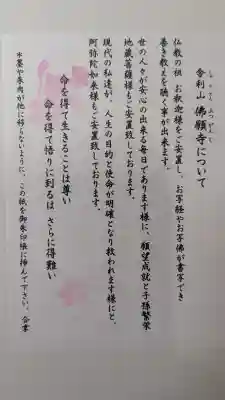 しゃりさん ぶつがんじ
舎利山 佛願寺について
仏教の祖 お釈迦様をご安置し、お写経やお写佛が書写でき
善き教えを聴く事が出来ます。
世の人々が安心の出来る毎日であります様に、願望成就と子孫繁栄
地蔵菩薩様もご安置致しております。
現代の私達が、人生の目的と使命が明確となり救われます様にと、
阿弥陀如来様もご安置致しております。
命を得て生きることは尊い
命を得て悟りに到るは さらに得難い
*墨や朱肉が他に移らないように、この紙を御朱印帳に挿んで下さい。合掌